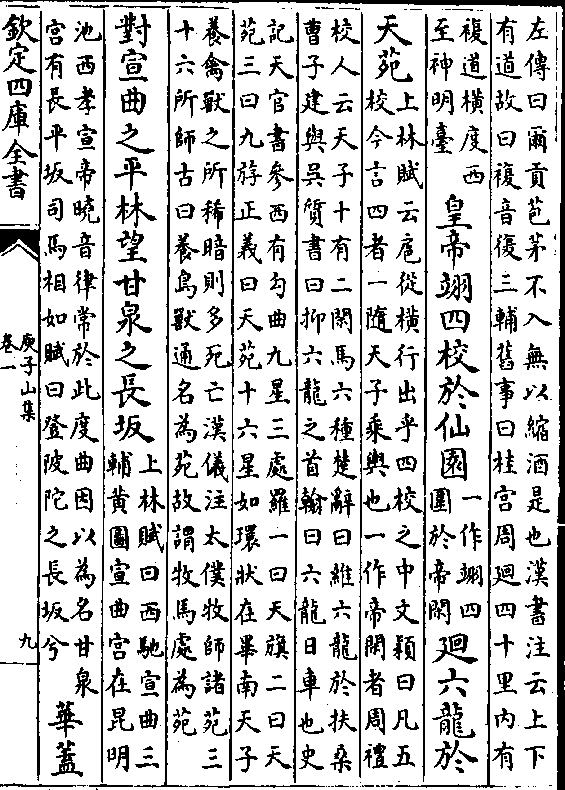 左傳曰爾貢苞茅不入無以縮酒是也漢書注云上下
有道故曰複音復三輔舊事曰桂宫周廻四十里内有
複道橫度西
至神明臺
皇帝翊四校於仙園
一作翊四
圍於帝閑
廻六龍於
天苑
上林賦云扈從橫行出乎四校之中文穎曰凡五
校今言四者一隨天子乘輿也一作帝閑者周禮
校人云天子十有二閑馬六種楚辭曰維六龍於扶桑
曹子建與吳質書曰抑六龍之首翰曰六龍日車也史
記天官書參西有勾曲九星三處羅一曰天旗二曰天
苑三曰九斿正義曰天苑十六星如環狀在畢南天子
養禽獸之所稀暗則多死亡漢儀注太僕牧師諸苑三
十六所師古曰養鳥獸通名為苑故謂牧馬處為苑
對宣曲之平林望甘泉之長坂
上林賦曰西馳宣曲三
輔黃圖宣曲宫在昆明
池西孝宣帝曉音律常於此度曲因以為名甘泉
宫有長平坂司馬相如賦曰登陂陀之長坂兮
華蓋
欽定四庫全書
庾子山集
卷一
九